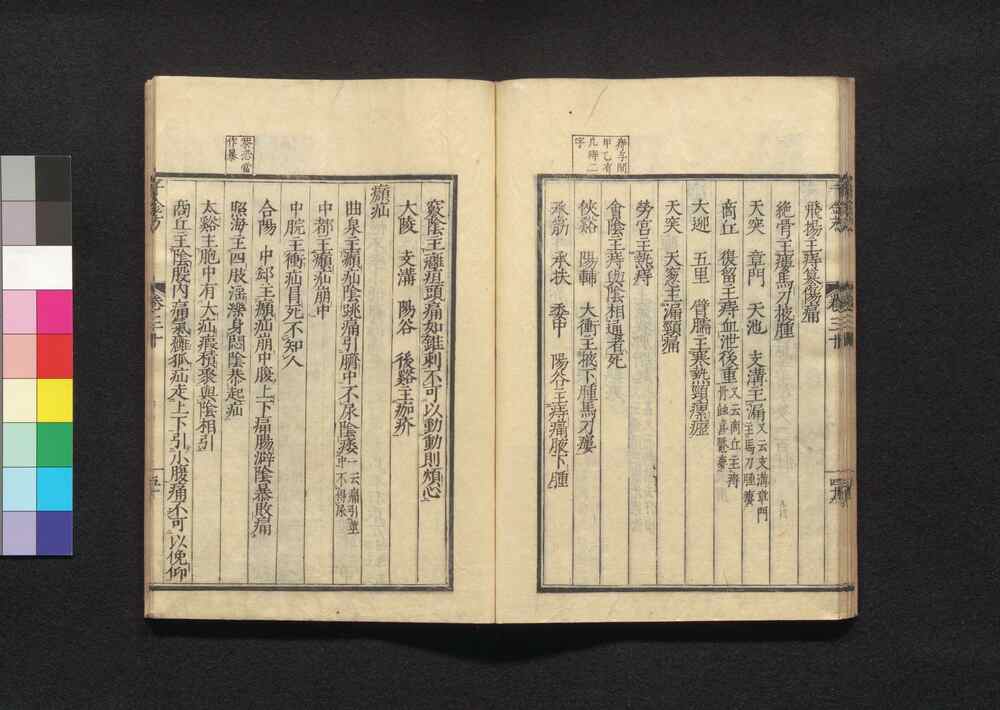 痔字間
甲乙有
几時二
字
飛揚主痔篡傷痛
絶骨主瘻馬刀掖腫
天突 章門 天池 支溝主漏又云支溝章門
主馬刀腫瘻
商丘 復留主痔血泄後重又云商丘主痔
骨蝕喜魘夢
大迎 五里 臂臑主寒熱頸瘰癧
天突 天窓主漏頸痛
勞宮主熱痔
會陰主痔與陰相通者死
俠谿 陽輔 大衝主掖下腫馬刀瘻
承筋 承扶 委中 陽谷主痔痛腋下腫
千金方 卷三十
竅陰主癰疽頭痛如錐刺不可以動動則煩心
大陵 支溝 陽谷 後谿主痂疥
㿗疝
曲泉主㿗疝陰跳痛引臍中不尿陰痿一云痛引莖
中不得尿
中都主㿗疝崩中
中脘主衝疝冒死不知人
合陽 中郄主㿗疝崩中腹上下痛腸澼陰暴敗痛
恭恐當
作暴
照海主四肢淫濼身悶陰恭起疝
太谿主胞中有大疝瘕積聚與陰相引
商丘主陰股內痛氣癰狐疝走上下引小腹痛不可以俛仰
千金方 卷三十 五十